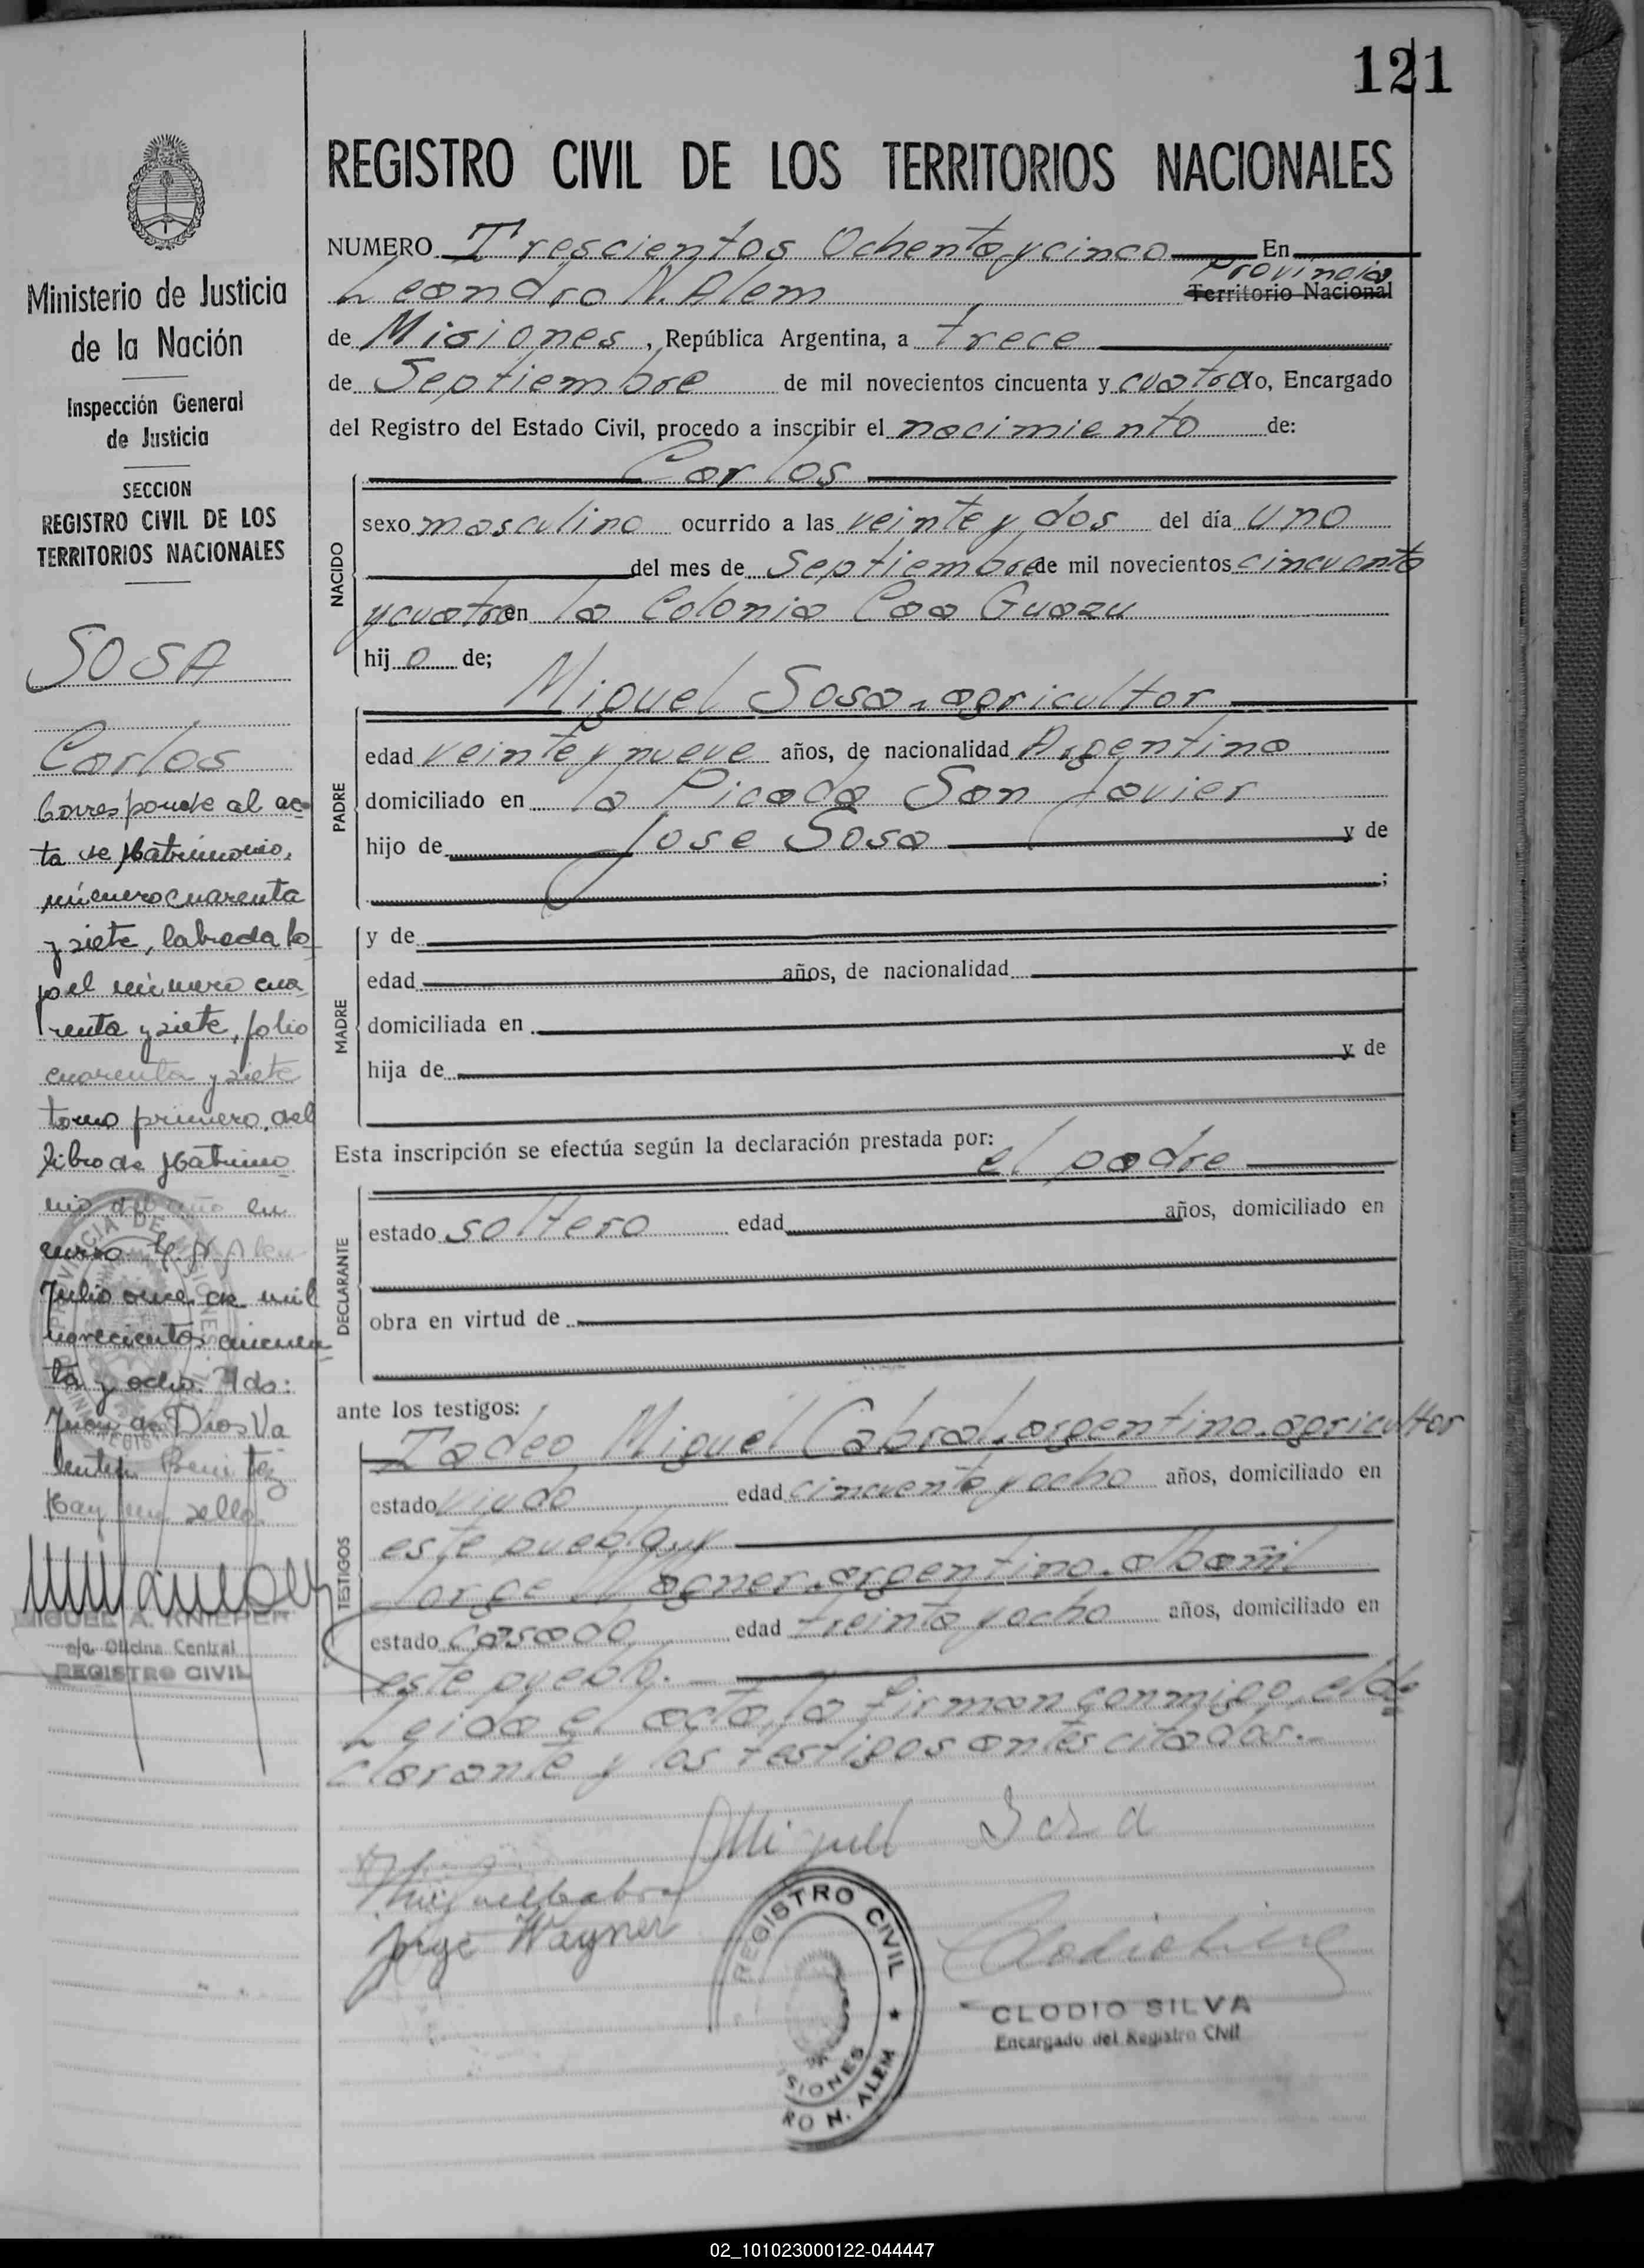 121
Ministerio de Justicia
de la Nación
Inspección General
de Justicia
SECCION
REGISTRO CIVIL DE LOS
TERRITORIOS NACIONALES
SOSA
Carlos
Corresponde al ac-
ta de Matrimonio,
número cuarenta
y siete, labrada ba-
jo el número cua-
renta y siete, folio
cuarenta y siete
tomo primero, del
libro de Matrimo
nio del año en
curso. L. N. Alem
Julio once de mil
novecientos cincuen
ta y ocho. Fdo:
Juan de Dios Va
lentin Benitez
Hay un sello.
MIGUEL A. KNIEPER
a/c. Oficina Central
REGISTRO CIVIL
REGISTRO CIVIL DE LOS TERRITORIOS NACIONALES
NUMERO Trescientos Ochenta y cinco En
Provincia
Leandro N. Alem Territorio Nacional
de Misiones, República Argentina, a trece
de Septiembre de mil novecientos cincuenta y cuatro Yo, Encargado
del Registro del Estado Civil, procedo a inscribir el nacimiento de:
Carlos
NACIDO
sexo masculino ocurrido a las veinte y dos del día uno
del mes de Septiembre de mil novecientos cincuenta
y cuatro en la Colonia Caa Guazu
hijo de;
Miguel Sosa, agricultor
PADRE
edad veinte y nueve años, de nacionalidad Argentina
domiciliado en la Picada San Javier
hijo de Jose Sosa y de
;
MADRE
y de
edad años, de nacionalidad
domiciliada en
hija de y de
Esta inscripción se efectúa según la declaración prestada por:
el padre
DECLARANTE
estado soltero edad años, domiciliado en
obra en virtud de
ante los testigos:
TESTIGOS
Tadeo Miguel Cabral, argentino, agricultor
estado viudo edad cincuenta y ocho años, domiciliado en
este pueblo y
Jorge Wagner, argentino, albañil
estado casado edad treinta y ocho años, domiciliado en
este pueblo.
Leida el acta, la firman conmigo, el de
clarante y los testigos antes citados.-
Miguel Sosa
Miguel Cabral
Jorge Wagner
REGISTRO CIVIL
SIONES
RO N. ALEM
CLODIO SILVA
Encargado del Registro Civil
02_101023000122-044447